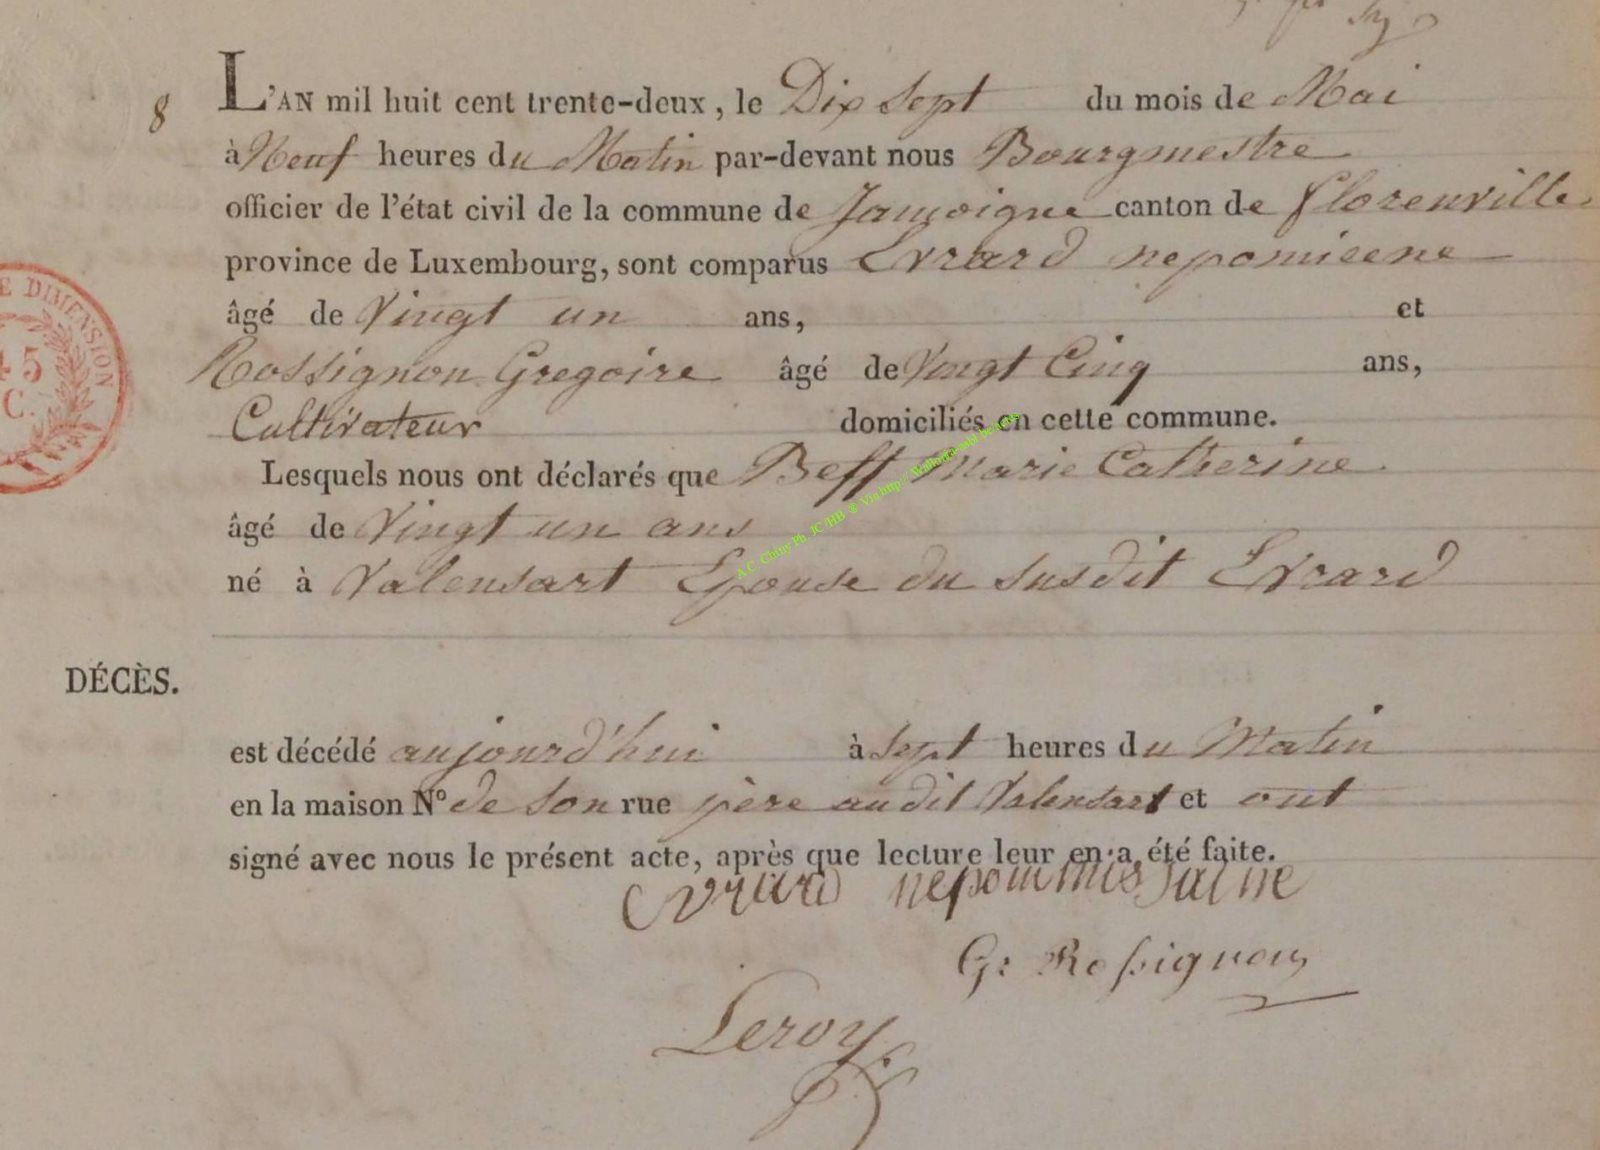 8
L'AN mil huit cent trente-deux, le Dix Sept du mois de Mai
à Neuf heures du Matin par-devant nous Bourgmestre
officier de l'état civil de la commune de Jamoigne canton de florenville
province de Luxembourg, sont comparus Evrard nepomicene
âgé de Vingt un ans, et
Rossignon Gregoire âgé de Vingt Cinq ans,
Cultivateur domiciliés en cette commune.
Lesquels nous ont déclarés que Beff Marie Catherine
âgé de Vingt un ans
né à Valensart Epouse du susdit Evrard
DÉCÈS.
est décédé aujourd'hui à Sept heures du Matin
en la maison N° de son rue père audit Valensart et ont
signé avec nous le présent acte, après que lecture leur en a été faite.
Evrard nepommissaine
G: Rossignon
Leroy
E DIMENSION
45
C.
A.C. Chiny Ph JC HB @ Via http://